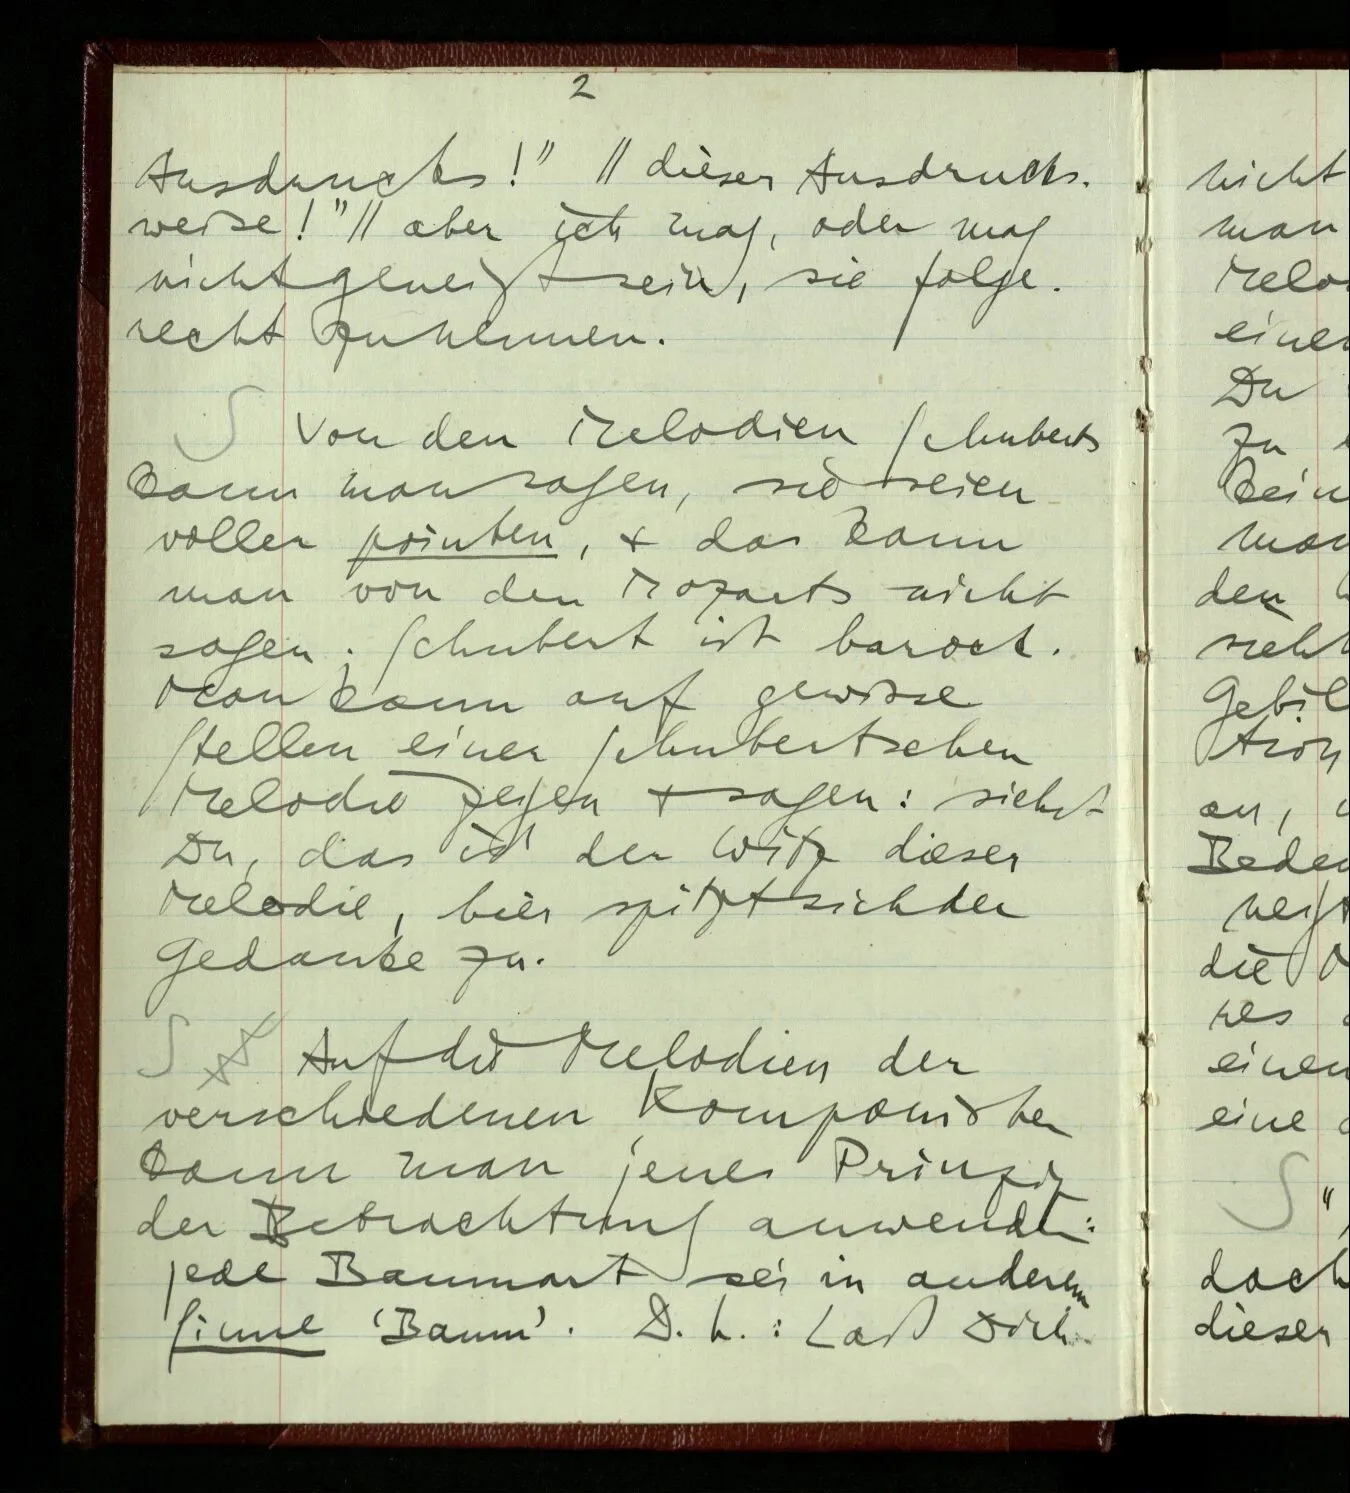 2
Ausdrucks!" || dieser Ausdrucks-
weise!" || aber ich mag, oder mag
nicht geneigt sein, sie folge-
recht zu nennen.
S Von den Melodien Schuberts
kann man sagen, sie seien
voller pointen, + das kann
man von den Mozarts nicht
sagen; Schubert ist barock.
Man kann auf gewisse
Stellen einer Schubertschen
Melodie zeigen + sagen: siehst
Du, das ist der Witz dieser
Melodie, hier spitzt sich der
Gedanke zu.
S Auf die Melodien der
verschiedenen Komponisten
kann man jenes Prinzip
der Betrachtung anwenden:
jede Baumart sei in anderem
Sinne 'Baum'. D.h.: Laß Dich
nicht
man
einen
Du
zu
den
an,
die
einen
eine
S "
doch
dieser